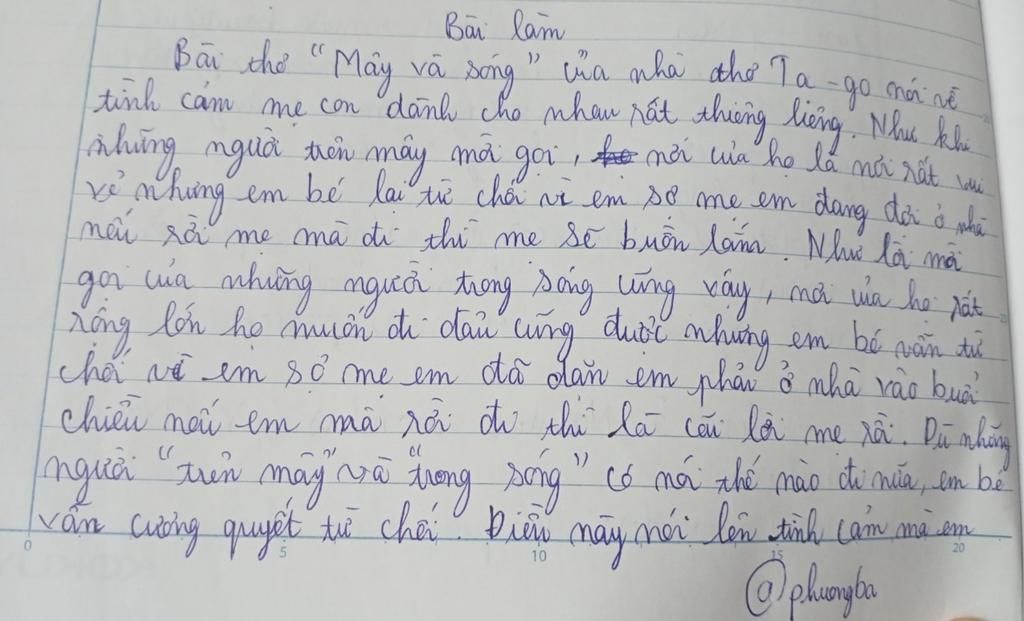 Bài làm
Bài thơ "Mây và sóng" của nhà thơ Ta-go nói về
tình cảm mẹ con dành cho nhau rất thiêng liêng. Như khi
những người trên mây mời gọi, nơi của họ là nơi rất vui
vẻ nhưng em bé lại từ chối vì em sợ mẹ em đang đợi ở nhà
nếu rời mẹ mà đi thì mẹ sẽ buồn lắm. Như lời mời
gọi của những người trong sóng cũng vậy, nơi của họ rất
rộng lớn họ muốn đi đâu cũng được nhưng em bé vẫn từ
chối vì em sợ mẹ em đã dặn em phải ở nhà vào buổi
chiều nếu em mà rời đi thì là cãi lời mẹ rồi. Dù những
người "trên mây" và "trong sóng" có nói thế nào đi nữa, em bé
vẫn cương quyết từ chối. Điều này nói lên tình cảm mà em
0 5 10 15 20
@phuongba